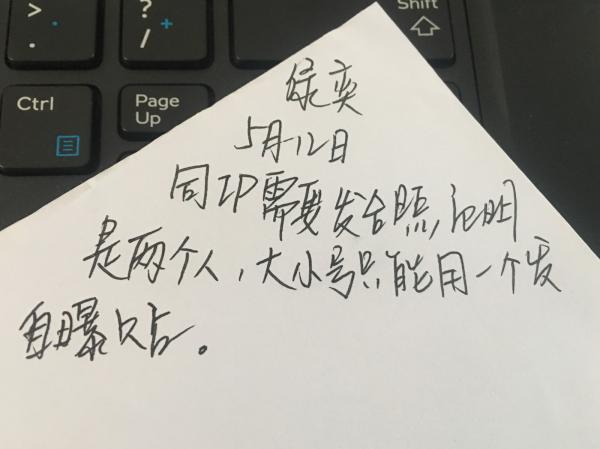 >
.
?
/
+
Shift
Ctrl
Page
Up
绿奕
5月12日
同IP需要发合照,证明
是两个人,大小号只能用一个发
自曝贴。